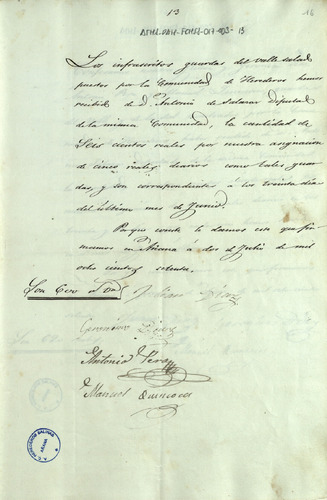 13
16
ATHA-DAH-FCHSA-017-003-13
Los infrascritos guardas del valle salado
puestos por la Comunidad de Herederos hemos
recibido de D. Antonio de Salazar Diputado
de la misma Comunidad, la cantidad de
Seis cientos reales por nuestra asignacion
de cinco reales diarios como tales guar
das, y son correspondientes á los treinta dias
del último mes de Junio.
Para que conste le damos esta que fir
mamos en Añana á dos de Julio de mil
ocho cientos setenta.
Son 600 Julian Diaz
Geronimo
Antonio Veraz
Manuel Quincoces
AÑANA